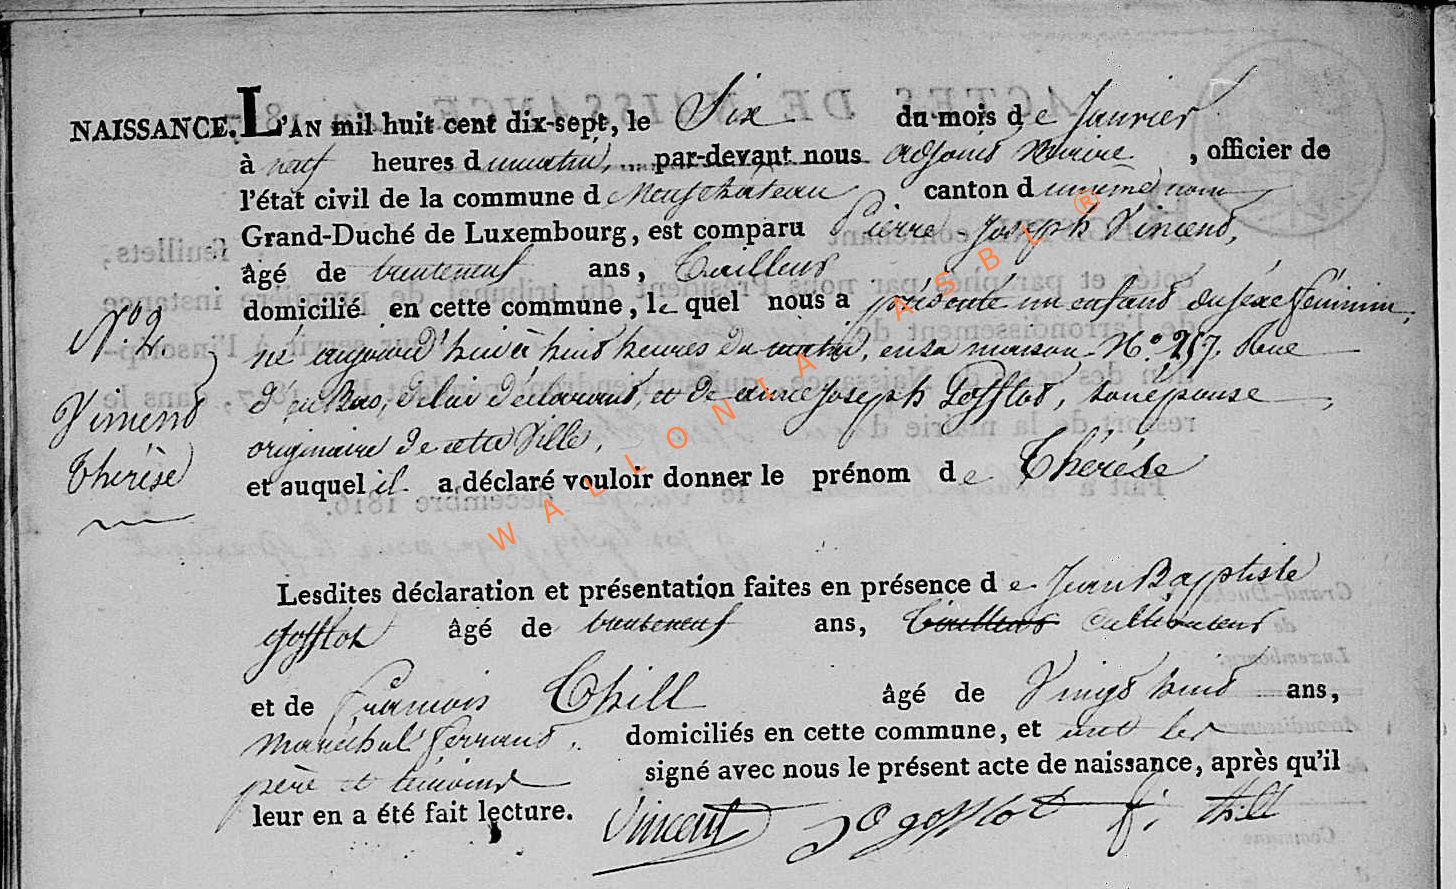 NAISSANCE. L'AN mil huit cent dix-sept, le Six du mois de Janvier
à neuf heures du matin, par-devant nous adjoint Maire, officier de
l'état civil de la commune de Neufchateau canton du même nom
Grand-Duché de Luxembourg, est comparu Pierre-Joseph Vincent,
âgé de trenteneuf ans, Tailleur
domicilié en cette commune, lequel nous a présenté un enfant du sexe féminin,
né aujourd'hui à huit heures du matin, en sa maison N.° 257. Rue
d'en Bas, de lui déclarant, et de anne Joseph Gofflot, son épouse
originaire de cette Ville,
et auquel il a déclaré vouloir donner le prénom de Thérése
N.° 2.
Vincent
thérèse
Lesdites déclaration et présentation faites en présence de Jean Baptiste
gofflot âgé de trenteneuf ans, Tailleur cultivateur
et de François Thill âgé de Vingt huit ans,
maréchal ferrant, domiciliés en cette commune, et ont les
père et témoins signé avec nous le présent acte de naissance, après qu'il
leur en a été fait lecture.
Vincent gofflot f: thill
WALLONIA ASBL ®